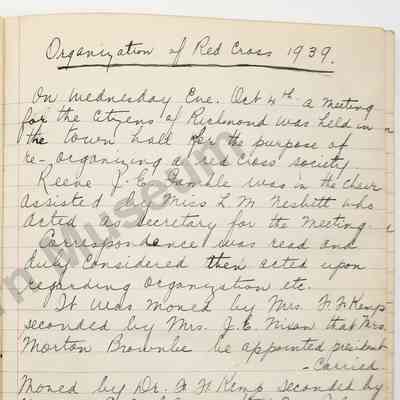 Organization of Red Cross 1939.
On Wednesday Eve. Oct 4th a meeting
for the Citizens of Richmond was held in
the town hall for the purpose of
re-organizing a red cross society
Reeve J. E. Gamble was in the chair
assisted by Miss L. M. Nesbitt who
acted as secretary for the Meeting.
Correspondence was read and
duly considered then acted upon
regarding organization etc.
It was moved by Mrs. W. H Kemp
seconded by Mrs. J. E. Nixon that Mrs.
Morton Brownlee be appointed president
-Carried.
Moved by Dr. W H Kemp seconded by
Museum